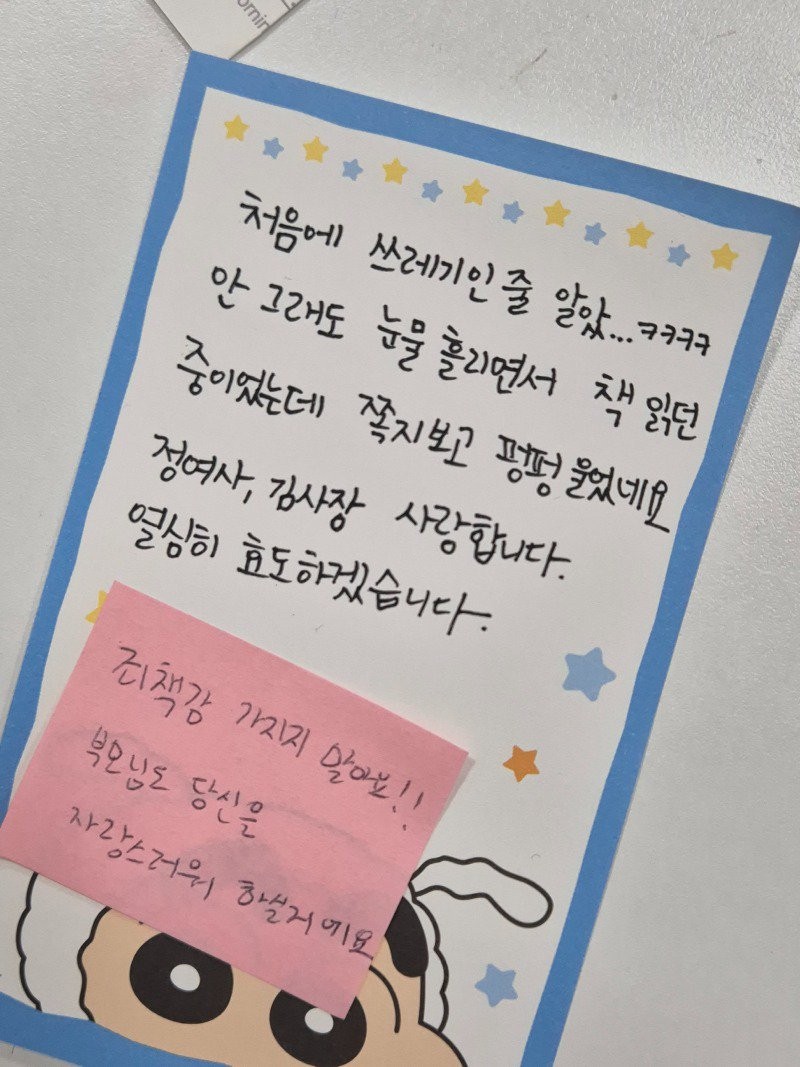 처음에 쓰레기인 줄 알았...ㅋㅋㅋㅋ
안 그래도 눈물 흘리면서 책 읽던
중이었는데 쪽지보고 펑펑 울었네요
정여사, 김사장 사랑합니다.
열심히 효도하겠습니다.
죄책감 가지지 말아요!!
부모님도 당신을
자랑스러워 하실거에요